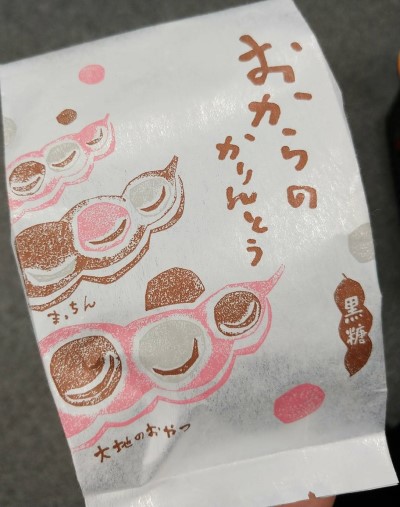 おからの
かりんとう
黒糖
まっちん
大地のおやつ